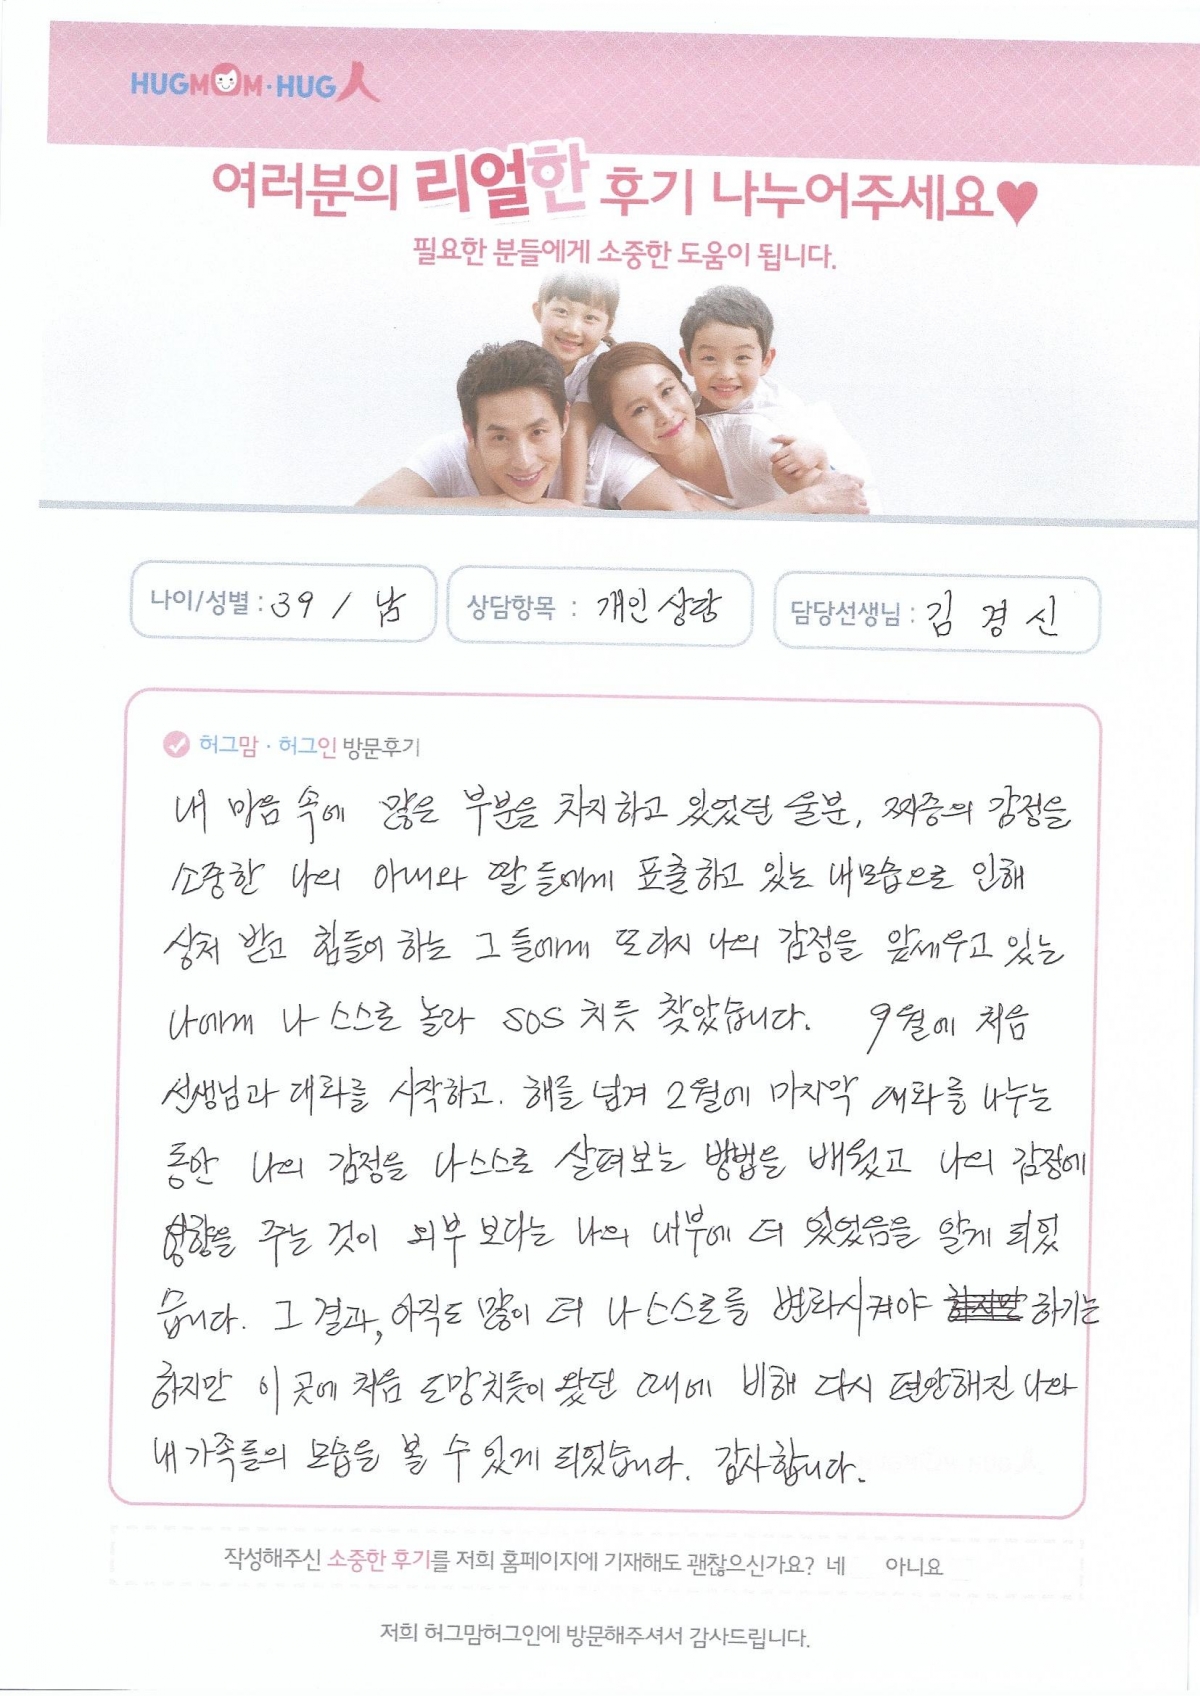 HUGMOM·HUG人
여러분의 리얼한 후기 나누어주세요♥
필요한 분들에게 소중한 도움이 됩니다.
나이/성별 : 39 / 남
상담항목 : 개인상담
담당선생님 : 김 경 신
허그맘 · 허그인 방문후기
내 마음 속에 많은 부분을 차지하고 있었던 울분, 짜증의 감정을
소중한 나의 아내와 딸들에게 표출하고 있는 내모습으로 인해
상처 받고 힘들어 하는 그들에게 또다시 나의 감정을 앞세우고 있는
나에게 나 스스로 놀라 SOS 치듯 찾았습니다. 9월에 처음
선생님과 대화를 시작하고. 해를 넘겨 2월에 마지막 대화를 나누는
동안 나의 감정을 나스스로 살펴보는 방법을 배웠고 나의 감정에
영향을 주는 것이 외부 보다는 나의 내부에 더 있었음을 알게 되었
습니다. 그 결과, 아직도 많이 더 나 스스로를 변화시켜야 하지만 하기는
하지만 이 곳에 처음 도망치듯이 왔던 때에 비해 다시 편안해진 나와
내 가족들의 모습을 볼 수 있게 되었습니다. 감사합니다.
작성해주신 소중한 후기를 저희 홈페이지에 기재해도 괜찮으신가요? 네 아니요
저희 허그맘허그인에 방문해주셔서 감사드립니다.